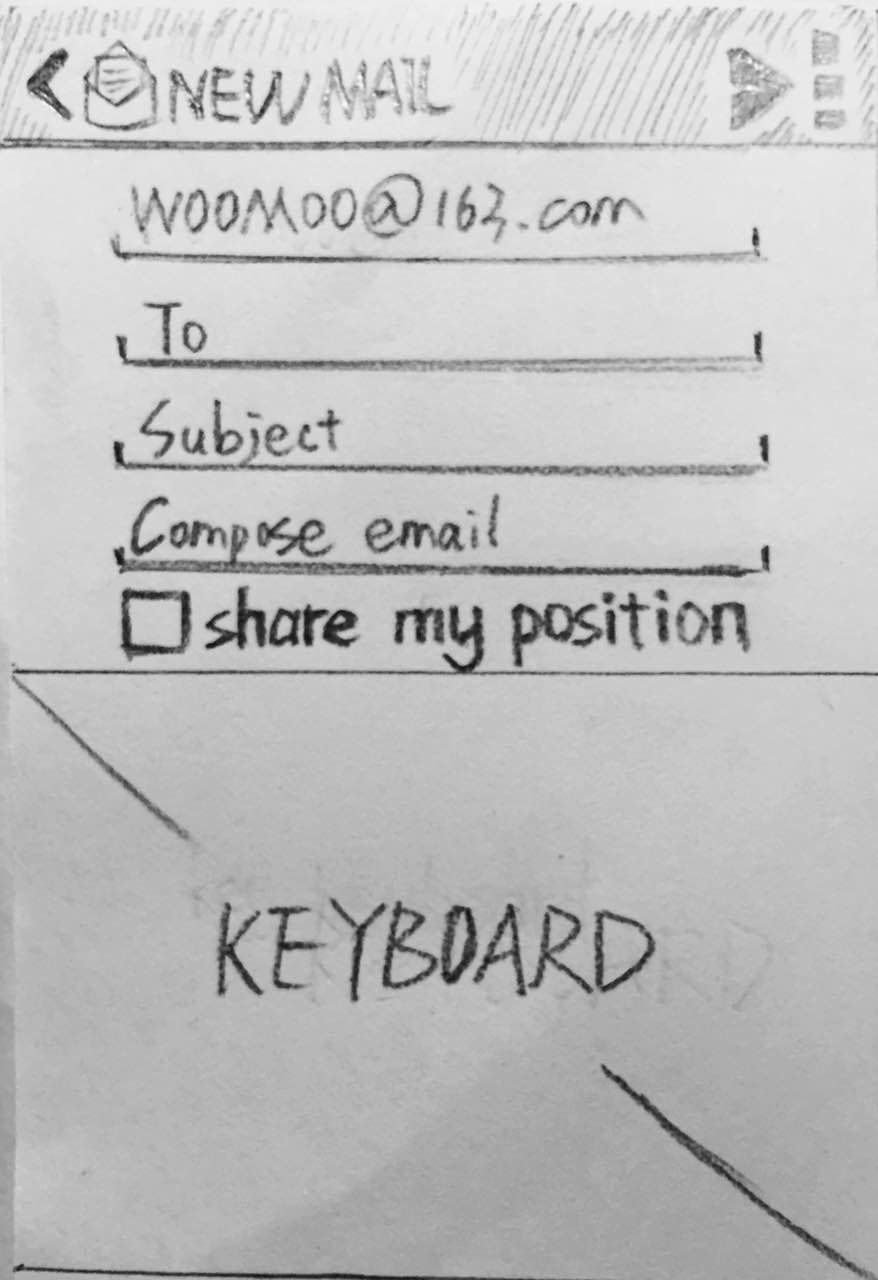 NEW MAIL
WOOMOO@163.com
To
Subject
Compose email
share my position
KEYBOARD